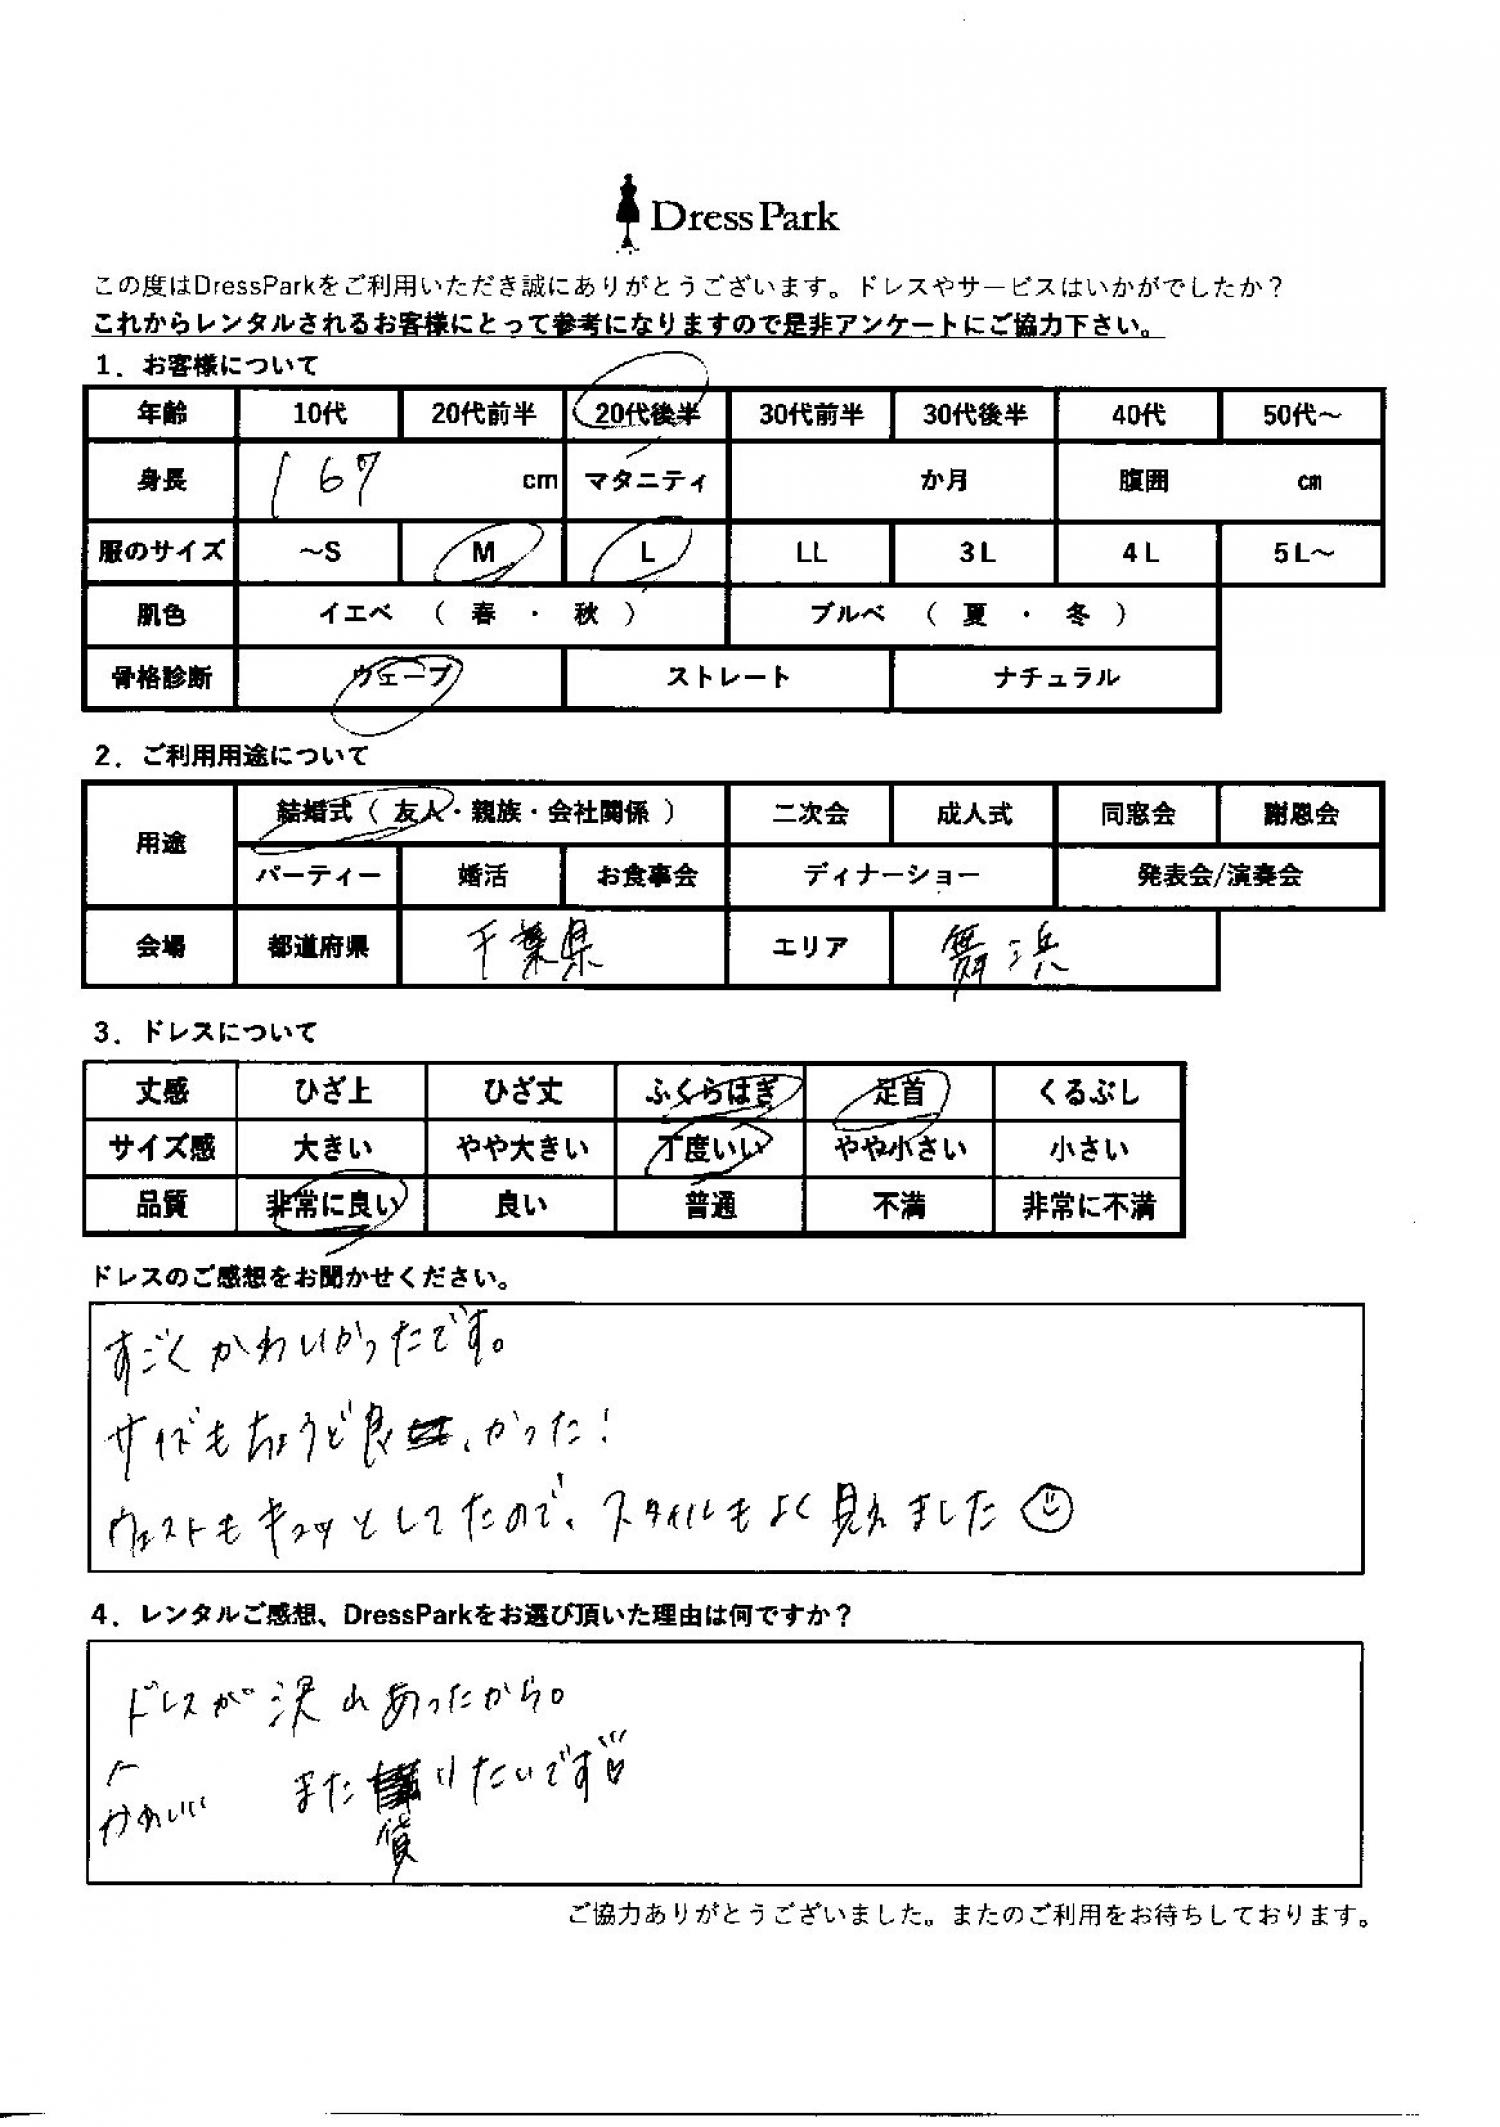 Dress Park
この度はDressParkをご利用いただき誠にありがとうございます。ドレスやサービスはいかがでしたか？
これからレンタルされるお客様にとって参考になりますので是非アンケートにご協力下さい。
1．お客様について
年齢 10代 20代前半 20代後半 30代前半 30代後半 40代 50代～
身長 167 cm マタニティ か月 腹囲 cm
服のサイズ ～S M L LL 3L 4L 5L～
肌色 イエベ （ 春 ・ 秋 ） ブルベ （ 夏 ・ 冬 ）
骨格診断 ウェーブ ストレート ナチュラル
2．ご利用用途について
用途 結婚式（ 友人・親族・会社関係 ） 二次会 成人式 同窓会 謝恩会
パーティー 婚活 お食事会 ディナーショー 発表会/演奏会
会場 都道府県 千葉県 エリア 舞浜
3．ドレスについて
丈感 ひざ上 ひざ丈 ふくらはぎ 足首 くるぶし
サイズ感 大きい やや大きい 丁度いい やや小さい 小さい
品質 非常に良い 良い 普通 不満 非常に不満
ドレスのご感想をお聞かせください。
すごくかわいかったです。
サイズもちょうど良かった！
ウエストもキュッとしてたので、スタイルもよく見えました
4．レンタルご感想、DressParkをお選び頂いた理由は何ですか？
ドレスが沢山あったから。
かわいい
また借りたいです♡
貸
ご協力ありがとうございました。またのご利用をお待ちしております。